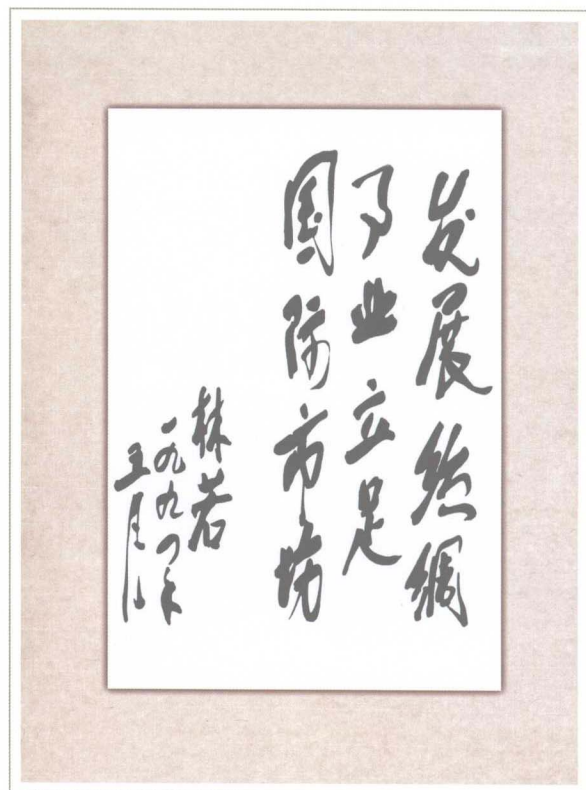 发展丝绸
事业立足
国际市场
林若
一九九四年
五月